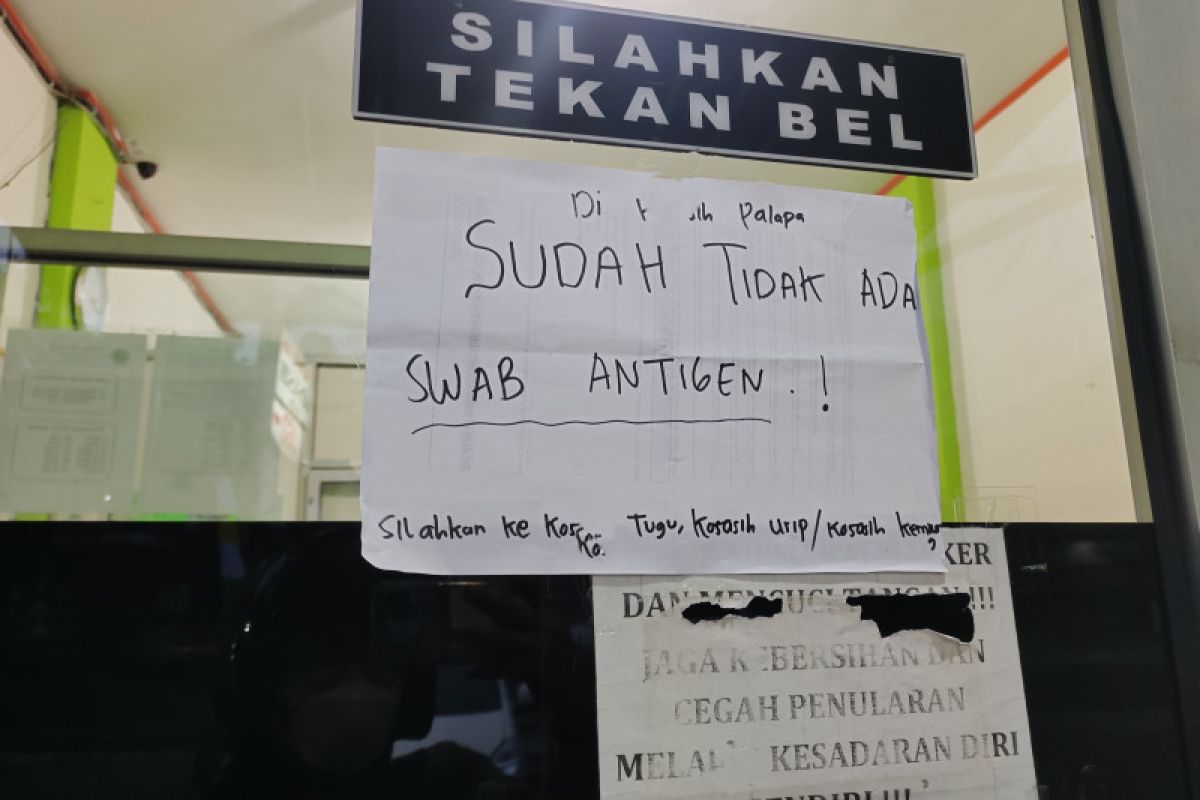 SILAHKAN
TEKAN BEL
Di Palapa
SUDAH TIDAK ADA
SWAB ANTIGEN . !
Silahkan ke Tugu, Kosasih Urip/Kosasih
KER
DAN MENCUCI TANGAN !!!
JAGA KEBERSIHAN DAN
CEGAH PENULARAN
KESADARAN DIRI